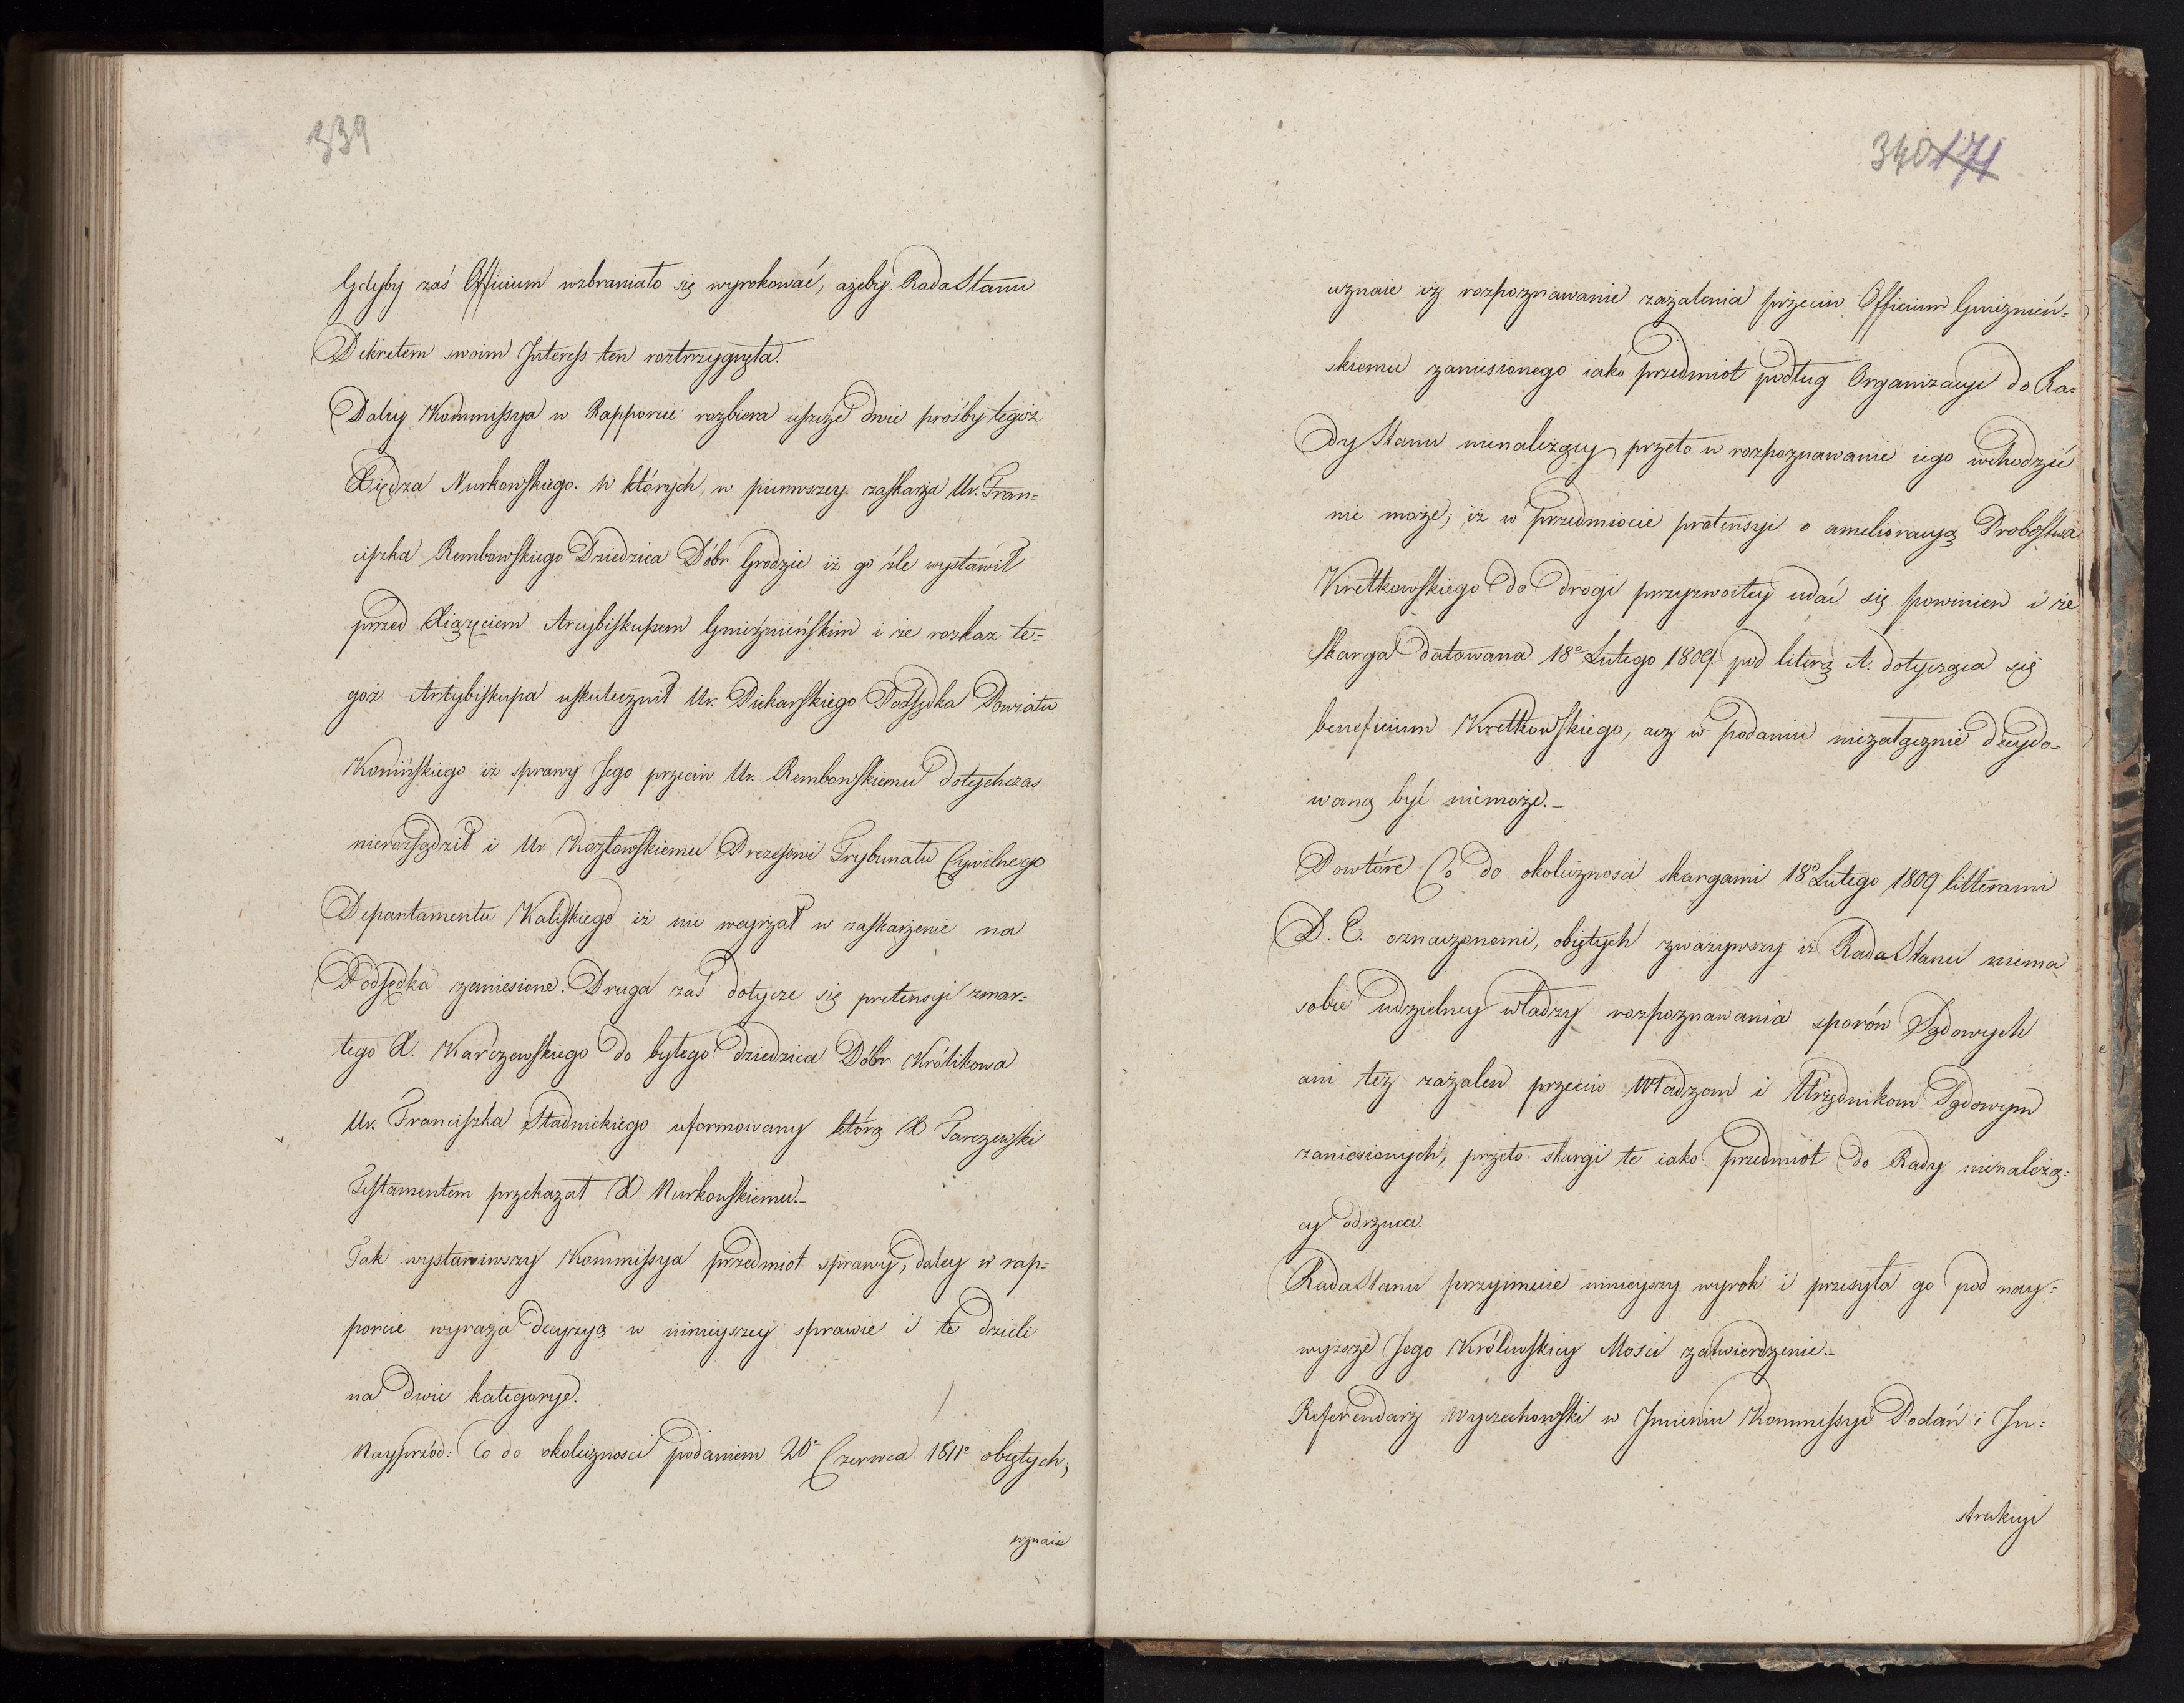 339
Gdyby zaś Officium wzbraniało się wyrokować, ażeby Rada Stanu
Dekretem swoim Interess ten roztrzygnęła.
Daley Kommissya w Rapporcie rozbiera ieszcze dwie prośby tegoż
Xiędza Nurkowskiego. W których, w pierwszey zaskarża Ur. Fran=
ciszka Rembowskiego Dziedzica Dóbr Grodzie iż go źle wystawił
przed Xiążęciem Arcybiskupem Gnieźnieńskim i że rozkaz te=
goż Arcybiskupa uskutecznił Ur. Piekarskiego Podsędka Powiatu
Konińskiego iż sprawy Jego przeciw Ur. Rembowskiemu dotychczas
nierozsądził i Ur. Kozłowskiemu Prezesowi Trybunału Cywilnego
Departamentu Kaliskiego iż nie weyrzał w zaskarżenie na
Podsędka zaniesione. Druga zaś dotycze się pretensyi zmar=
łego X. Karczewskiego do byłego dziedzica Dóbr Królikowa
Ur. Franciszka Stadnickiego uformowany którą X Tarczewski
Testamentem przekazał X Nurkowskiemu.-
Tak wystawiwszy Kommissya przedmiot sprawy, daley w rap=
porcie wyraża decyzyą w ninieyszey sprawie i te dzieli
na dwie kategorye.
Nayprzód: Co do okoliczności podaniem 20° Czerwca 1811° obiętych;
uznaie
340 171
uznaie iż rozpoznawanie zażalenia przeciw Officium Gnieznień=
skiemu zaniesionego iako przedmiot podług Organizacyi do Ra=
dy Stanu nienależący przeto w rozpoznawanie iego wchodzić
nie może; iż w przedmiocie pretensyi o amelioracyą Probostwa
Kretkowskiego do drogi przyzwoitey udać się powinien i że
Skarga datowana 18° Lutego 1809. pod literą A. dotycząca się
beneficium Kretkowskiego, acz w podaniu niezałącznie decydo=
waną być niemoże.-
Powtóre Co do okoliczności skargami 18° Lutego 1809 litterami
D. E. oznaczonemi, obiętych zważywszy iż Rada Stanu niema
sobie udzielney władzy rozpoznawania sporów Sądowych
ani też zażaleń przeciw Władzom i Urzędnikom Sądowym
zaniesionych, przeto skargi te iako przedmiot do Rady nienależą=
cy odrzuca.
Rada Stanu przyimuie ninieyszy wyrok i przesyła go pod nay=
wyższe Jego Królewskiey Mości zatwierdzenie.-
Referendarz Wyczechowski w Imieniu Kommissyi Podań i In=
strukcyi